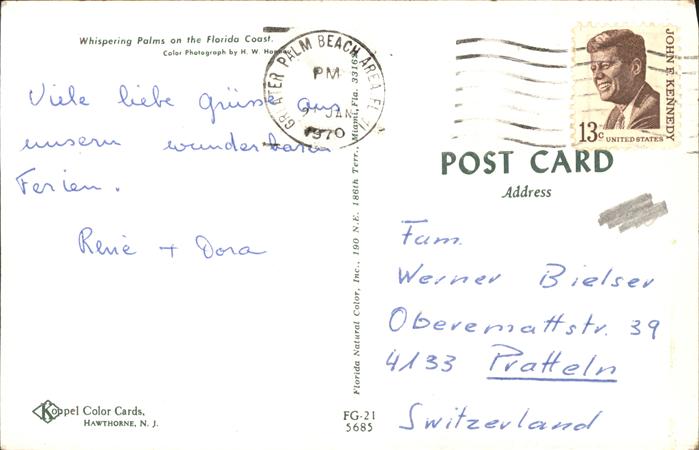 Whispering Palms on the Florida Coast.
Color Photograph by H. W.
Viele liebe Grüsse aus
unsern wunderbaren
Ferien.
René + Dora
GREATER PALM BEACH AREA FL
PM
JAN
1970
JOHN F. KENNEDY
13c
UNITED STATES
POST CARD
Address
Fam.
Werner Bielser
Oberemattstr. 39
4133 Pratteln
Switzerland
Florida Natural Color, Inc., 190 N.E. 186th Terr., Miami, Fla. 33169
Koppel Color Cards,
HAWTHORNE, N. J.
FG-21
5685